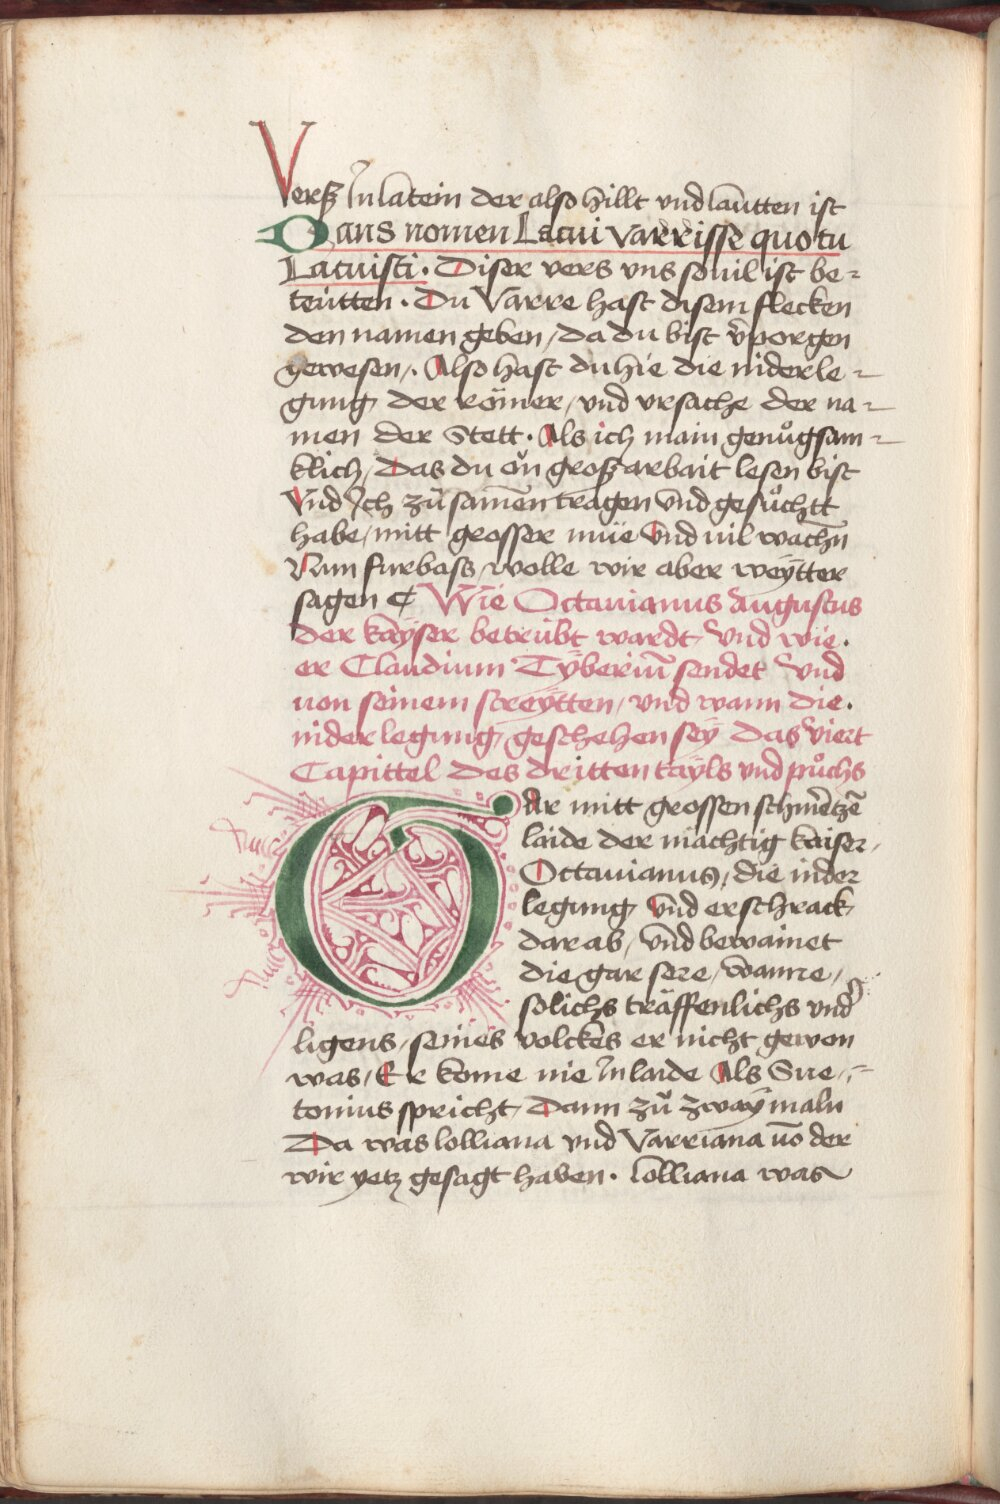 Versz Jn latein der also hillt vnd lautten ist
Dans nomen Lacui Varrisse quo tu
Latuisti. Diser vers vns souil ist be-
teutten. Du Varre hast disem flecken
den namen geben, da du bist v̾porgen
gewesen,. Also hast du hie die niderle-
gung, der römer, vnd vrsache der na-
men der Stett. Als ich main genůgsam-
klich, Das du on grosz arbait lesen bist
Vnd Jch zů samen tragen vnd gesůchtt
habe, mitt grosser müe vnd uil wachn̄
Nun furbass, wolle wir aber weÿtter
sagen ₵ Wie Octauianus Augustus
der kaÿser betrübt wardt, vnd wie.
er Claudium Tÿberiū sendet vnd
uon seinem streÿtten, vnd wann die.
nider legung, geschehen seÿ das viert
Capittel des dritten taÿls vnd půchs
GAr mitt grossen schmertzē
laide der mächtig kaiser,
Octauianus, die nider
legung, vnd erschrack
darab, vnd bewainet
die gar sere, wanne,
solichs träffenlichs vnd
ligens, seines volckes er nicht gewon
was, Er kome nie Jn laide Als Sue-
tonius spricht, Dann zů zwaÿ maln
Da was lolliana vnd Varriana uō der
wir yetz gesagt haben. Lolliana was